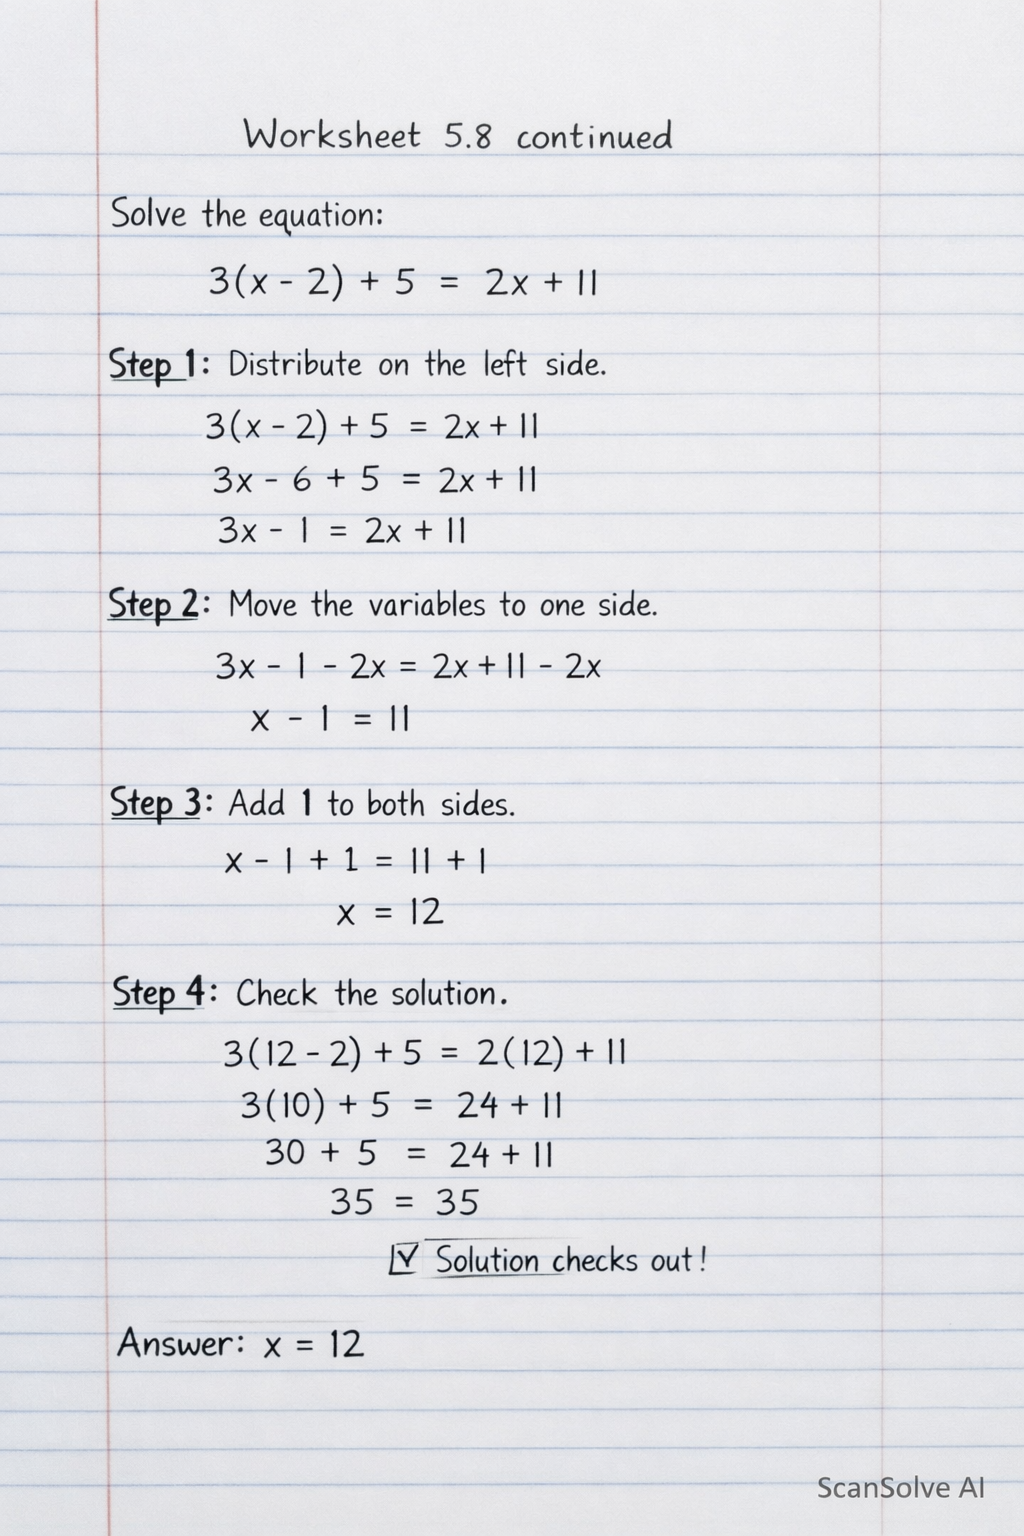 Worksheet 5.8 continued
Solve the equation:
3(x - 2) + 5 = 2x + 11
Step 1: Distribute on the left side.
3(x - 2) + 5 = 2x + 11
3x - 6 + 5 = 2x + 11
3x - 1 = 2x + 11
Step 2: Move the variables to one side.
3x - 1 - 2x = 2x + 11 - 2x
x - 1 = 11
Step 3: Add 1 to both sides.
x - 1 + 1 = 11 + 1
x = 12
Step 4: Check the solution.
3(12 - 2) + 5 = 2(12) + 11
3(10) + 5 = 24 + 11
30 + 5 = 24 + 11
35 = 35
☑ Solution checks out!
Answer: x = 12
ScanSolve AI